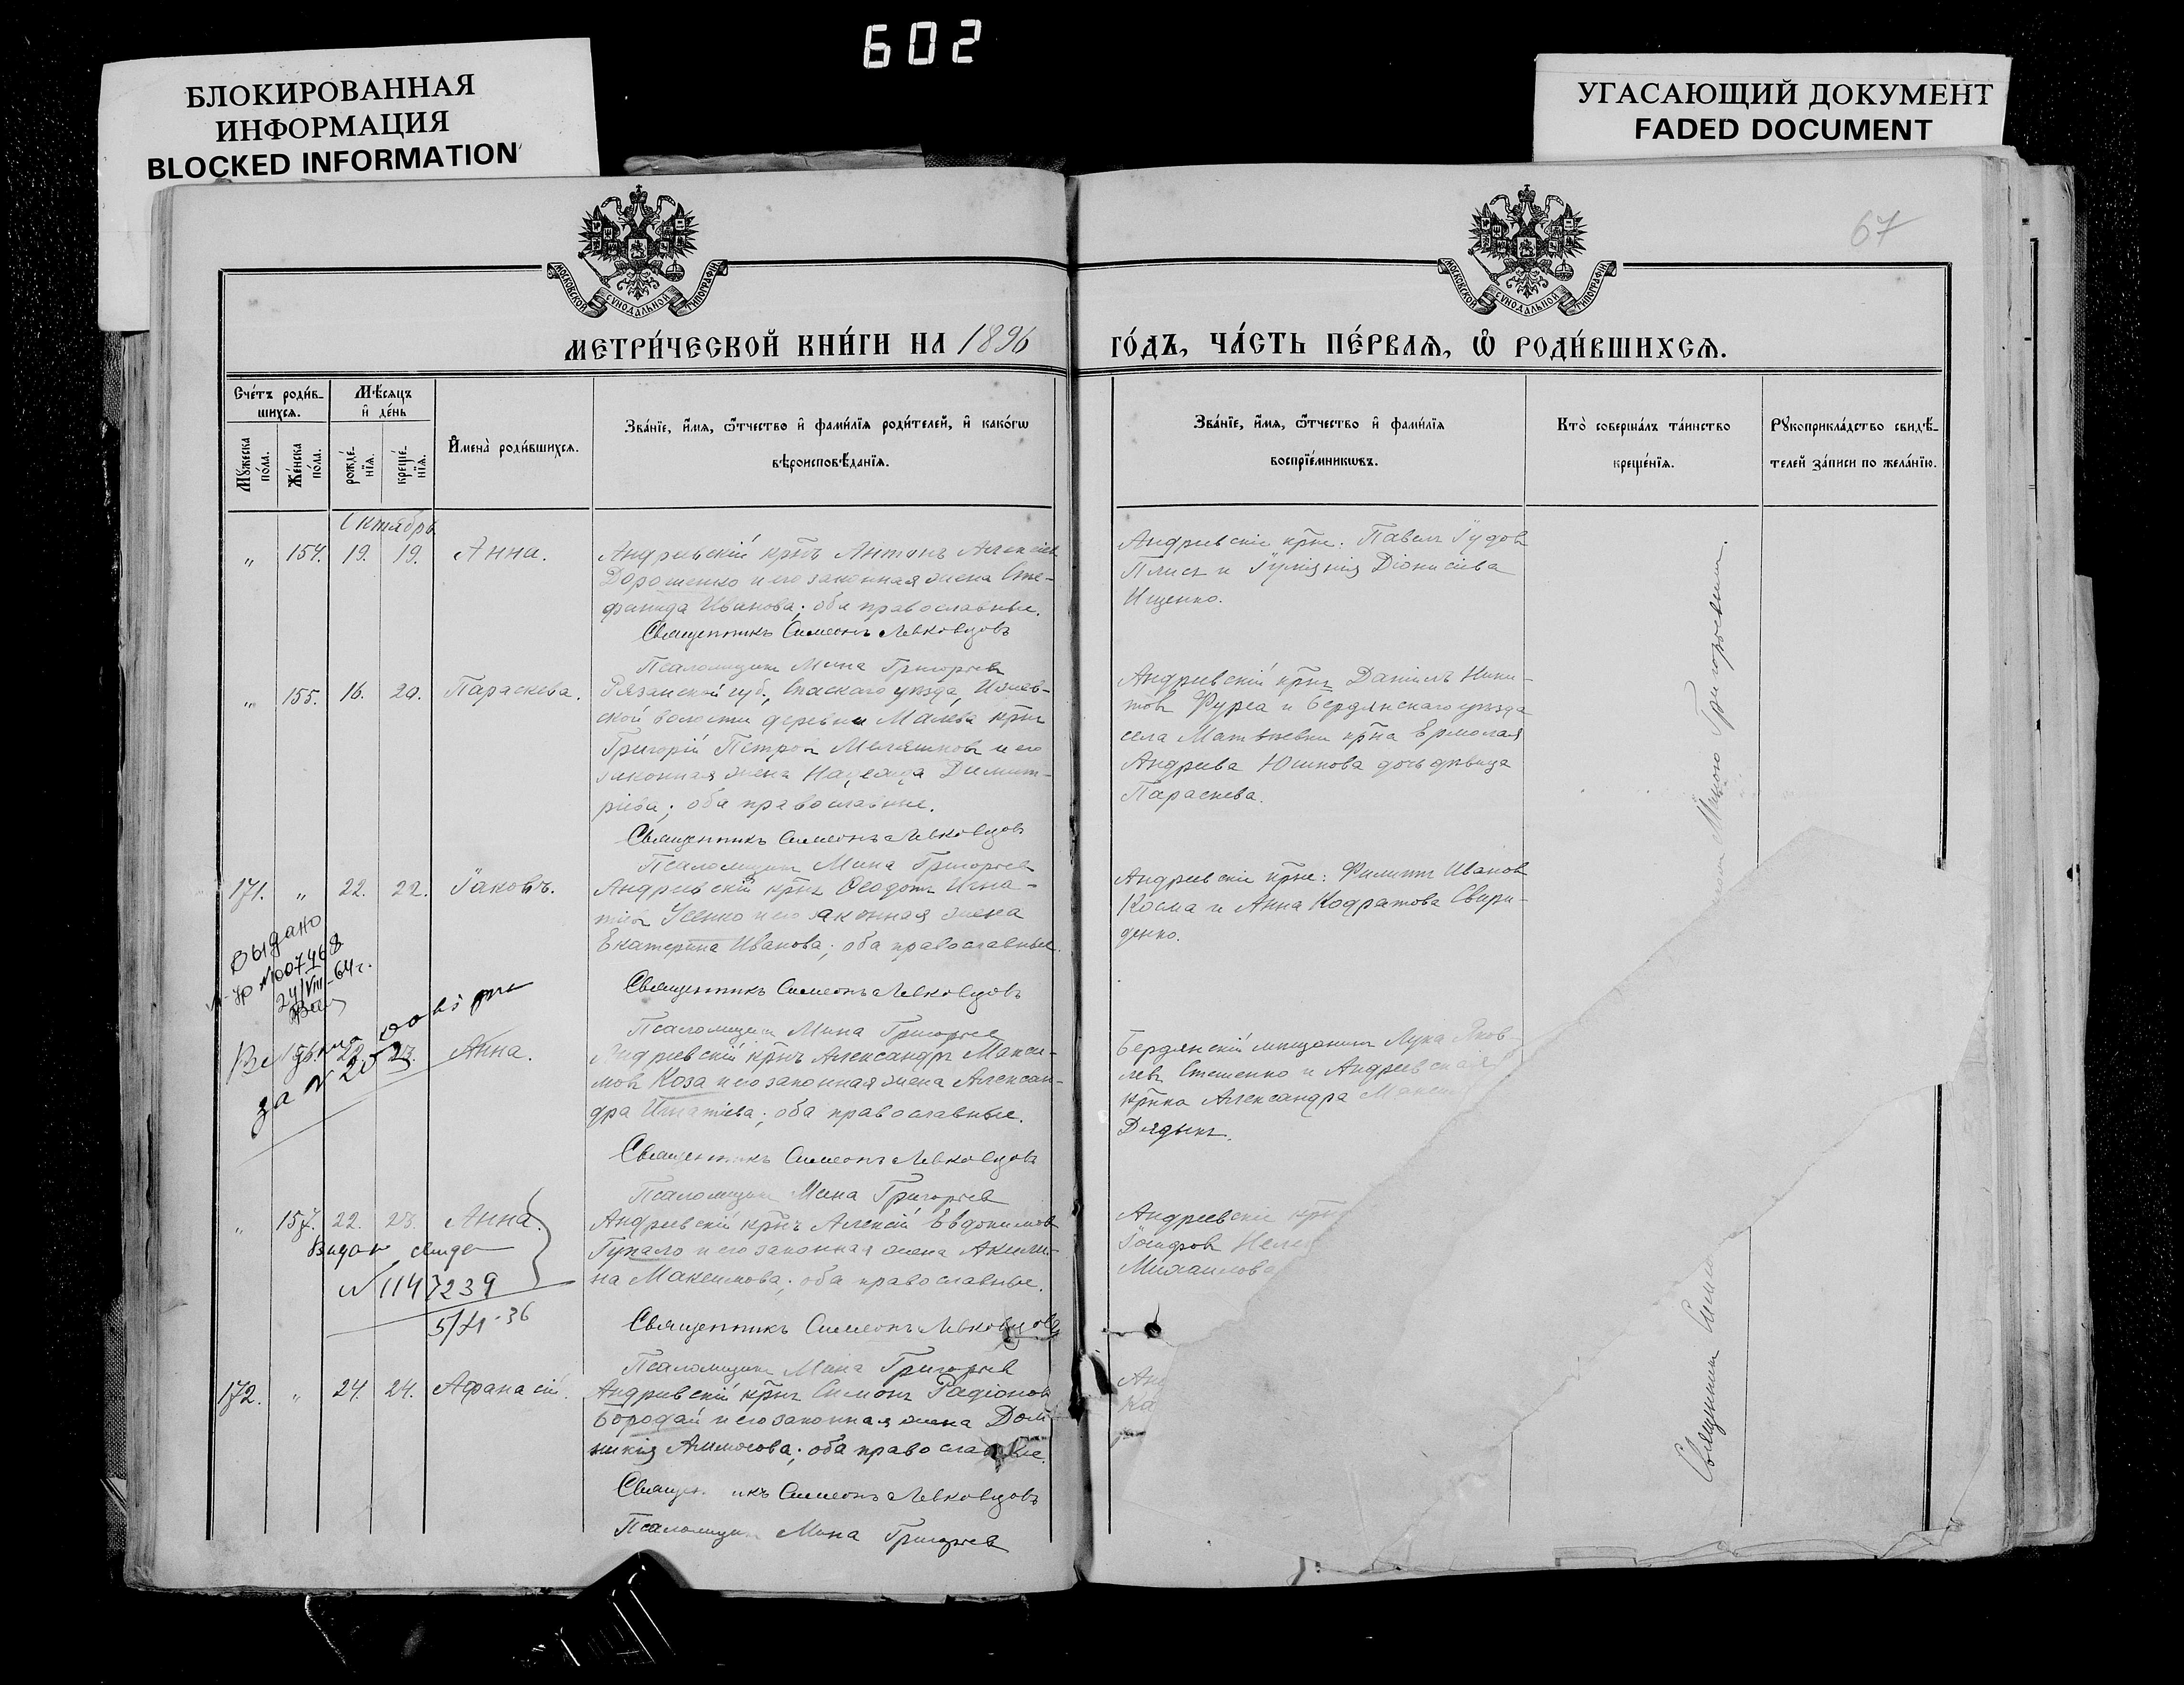 602
БЛОКИРОВАННАЯ
ИНФОРМАЦИЯ
BLOCKED INFORMATION
УГАСАЮЩИЙ ДОКУМЕНТ
FADED DOCUMENT
67
МОСКОВСКОЙ СѴНОДАЛЬНОЙ ТИПОГРАФІИ
МОСКОВСКОЙ СѴНОДАЛЬНОЙ ТИПОГРАФІИ
МЕТРИ́ЧЕСКОЙ КНИ́ГИ НА 1896
ГО́ДЪ, ЧА́СТЬ ПЕ́РВАѦ, Ѽ РОДИ́ВШИХСѦ.
Сче́тъ роди́в-
шихсѧ.
Мѣ́сѧцъ
и҆ де́нь
Мꙋ́жеска по́ла.
Же́нска по́ла.
рожде́-
нїѧ.
креще́-
нїѧ.
И҆мена̀ роди́вшихсѧ.
Зва́нїе, и҆́мѧ, ѻ҆́тчество и҆ фами́лїѧ роди́телей, и҆ како́гѡ
вѣроисповѣ́данїѧ.
Зва́нїе, и҆́мѧ, ѻ҆́тчество и҆ фами́лїѧ
воспрїе́мникѡвъ.
Кто̀ соверша́лъ та́инство
креще́нїѧ.
Рꙋкоприкла́дство свидѣ́-
телей за́писи по жела́нїю.
Октябрь
„ 154. 19. 19. Анна.
Андреевскій крнъ Антонъ Алексіевъ
Дорошенко и его законная жена Сте-
фанида Иванова; оба православные.
Священникъ Симеонъ Левковцовъ
Псаломщикъ Мина Григорьевъ
Андреевскіе крне: Павелъ
Плись и Діонисіева
Ищенко.
„ 155. 16. 20. Параскева.
Рязанской губ., Спаскаго уѣзда, Ижев-
ской волости деревни крнъ
Григорій Петровъ и его
законная жена Надежда Димит-
ріева; оба православные.
Священникъ Симеонъ Левковцовъ
Псаломщикъ Мина Григорьевъ
Андреевскій крнъ Даніилъ Ники-
товъ Фурса и Бердянскаго уѣзда
села Матвѣевки крна Ермолая
Андреева Юшкова дочь дѣвица
Параскева.
171. „ 22. 22. Іаковъ.
Андреевскій крнъ Ѳеодотъ Игна-
тіевъ Усенко и его законная жена
Екатерина Иванова; оба православные.
Священникъ Симеонъ Левковцовъ
Псаломщикъ Мина Григорьевъ
Андреевскіе крне: Филиппъ Ивановъ
Косма и Анна Кодратова Свири-
денко.
Выдано
№ 007468
24/VIII-64г.
22. 23. Анна.
за № 2052
Андреевскій крнъ Александръ Макси-
мовъ Коза и его законная жена Алексан-
дра Игнатіева; оба православные.
Священникъ Симеонъ Левковцовъ
Псаломщикъ Мина Григорьевъ
Бердянскій мѣщанинъ Лука Яков-
левъ Стешенко и Андреевская
крнка Александра
Дядыкъ.
„ 157. 22. 23. Анна.
Видано
№ 1147239
5/XI-36
Андреевскій крнъ Алексій Евдокимовъ
Гупало и его законная жена Акили-
на Максимова; оба православные.
Священникъ Симеонъ Левковцовъ
Псаломщикъ Мина Григорьевъ
Андреевскіе
Михаилова
172. „ 24. 24. Афанасій.
Андреевскій крнъ Симонъ Радіоновъ
Бородай и его законная жена Дом-
никія; оба православные.
Священникъ Симеонъ Левковцовъ
Псаломщикъ Мина Григорьевъ
Священникъ
Миною Григорьевымъ.